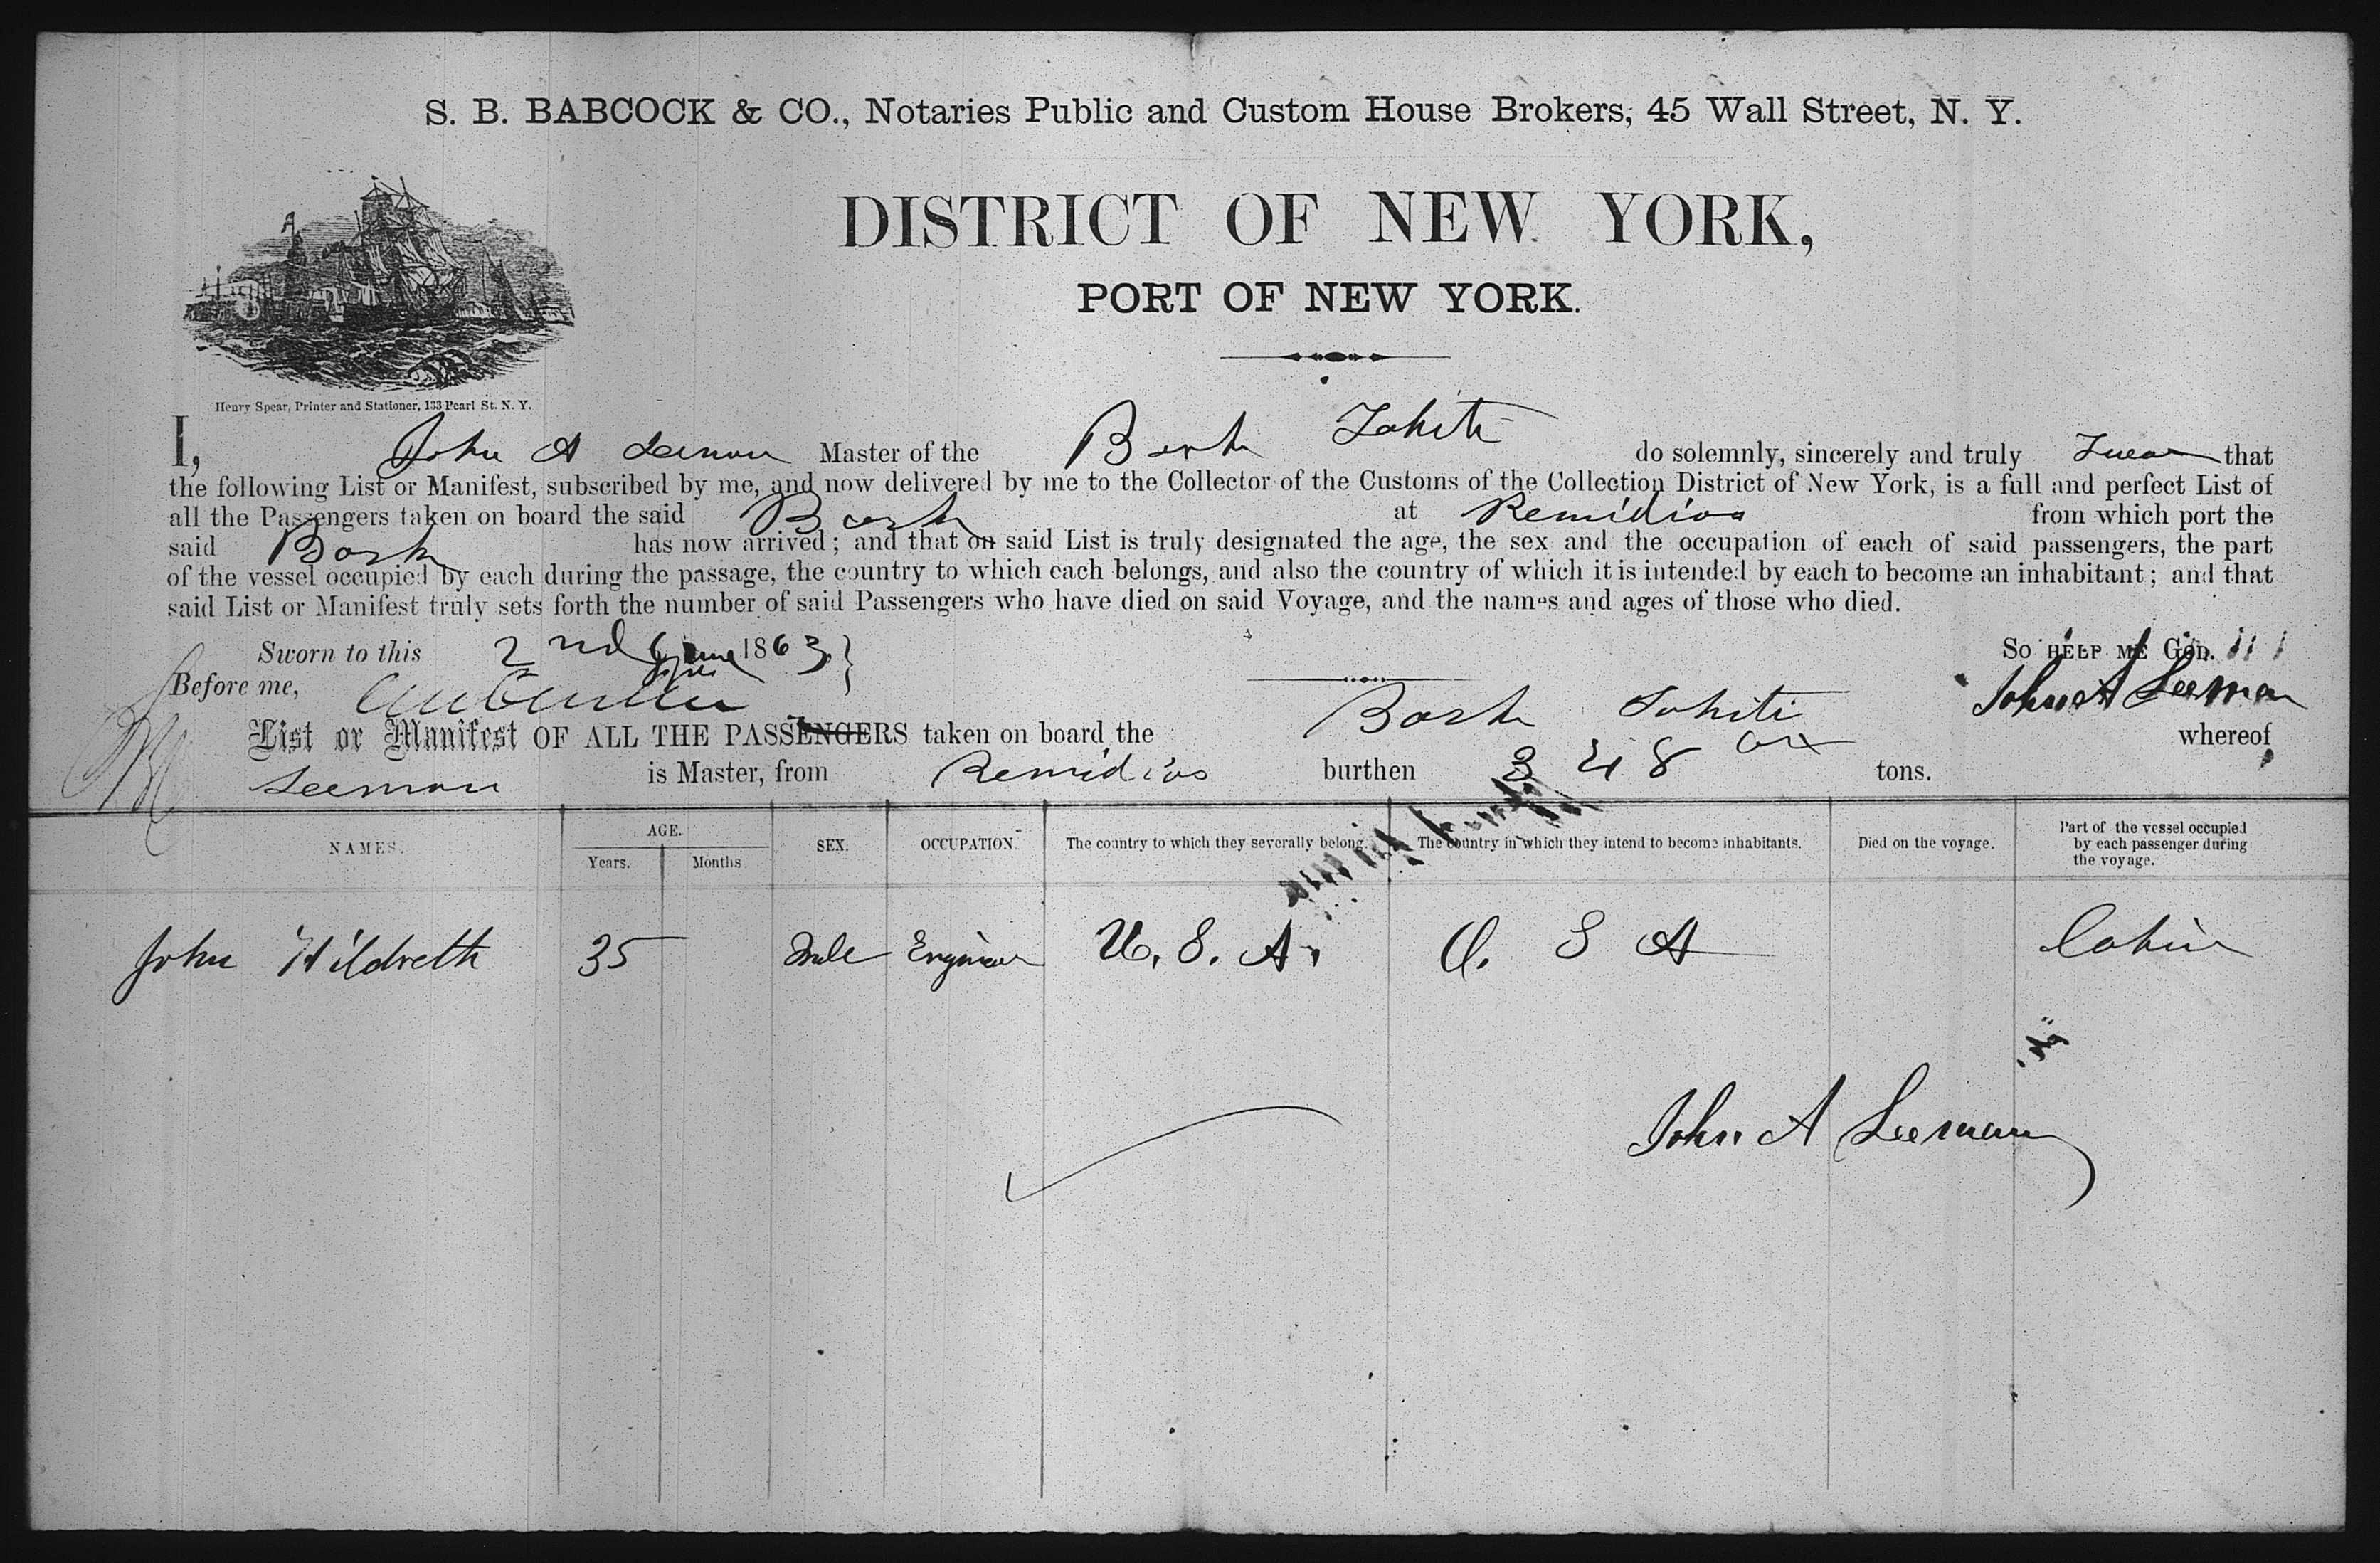 S. B. BABCOCK & CO., Notaries Public and Custom House Brokers, 45 Wall Street, N. Y.
DISTRICT OF NEW YORK,
PORT OF NEW YORK.
Henry Spear, Printer and Stationer, 133 Pearl St. N. Y.
I, John A Leeman Master of the Bark Tahiti do solemnly, sincerely and truly Swear that
the following List or Manifest, subscribed by me, and now delivered by me to the Collector of the Customs of the Collection District of New York, is a full and perfect List of
all the Passengers taken on board the said Bark at Remidios from which port the
said Bark has now arrived; and that on said List is truly designated the age, the sex and the occupation of each of said passengers, the part
of the vessel occupied by each during the passage, the country to which each belongs, and also the country of which it is intended by each to become an inhabitant; and that
said List or Manifest truly sets forth the number of said Passengers who have died on said Voyage, and the names and ages of those who died.
Sworn to this 2nd June 1863 So HELP ME GOD.
Before me, John A Leeman
List or Manifest OF ALL THE PASSENGERS taken on board the Bark Tahiti whereof
Leeman is Master, from Remidios burthen 348 tons.
NAMES. AGE. Years. Months SEX. OCCUPATION. The country to which they severally belong. The country in which they intend to become inhabitants. Died on the voyage. Part of the vessel occupied by each passenger during the voyage.
John Hildreth 35 Male Engineer U. S. A. U. S A Cabin
John A Leeman